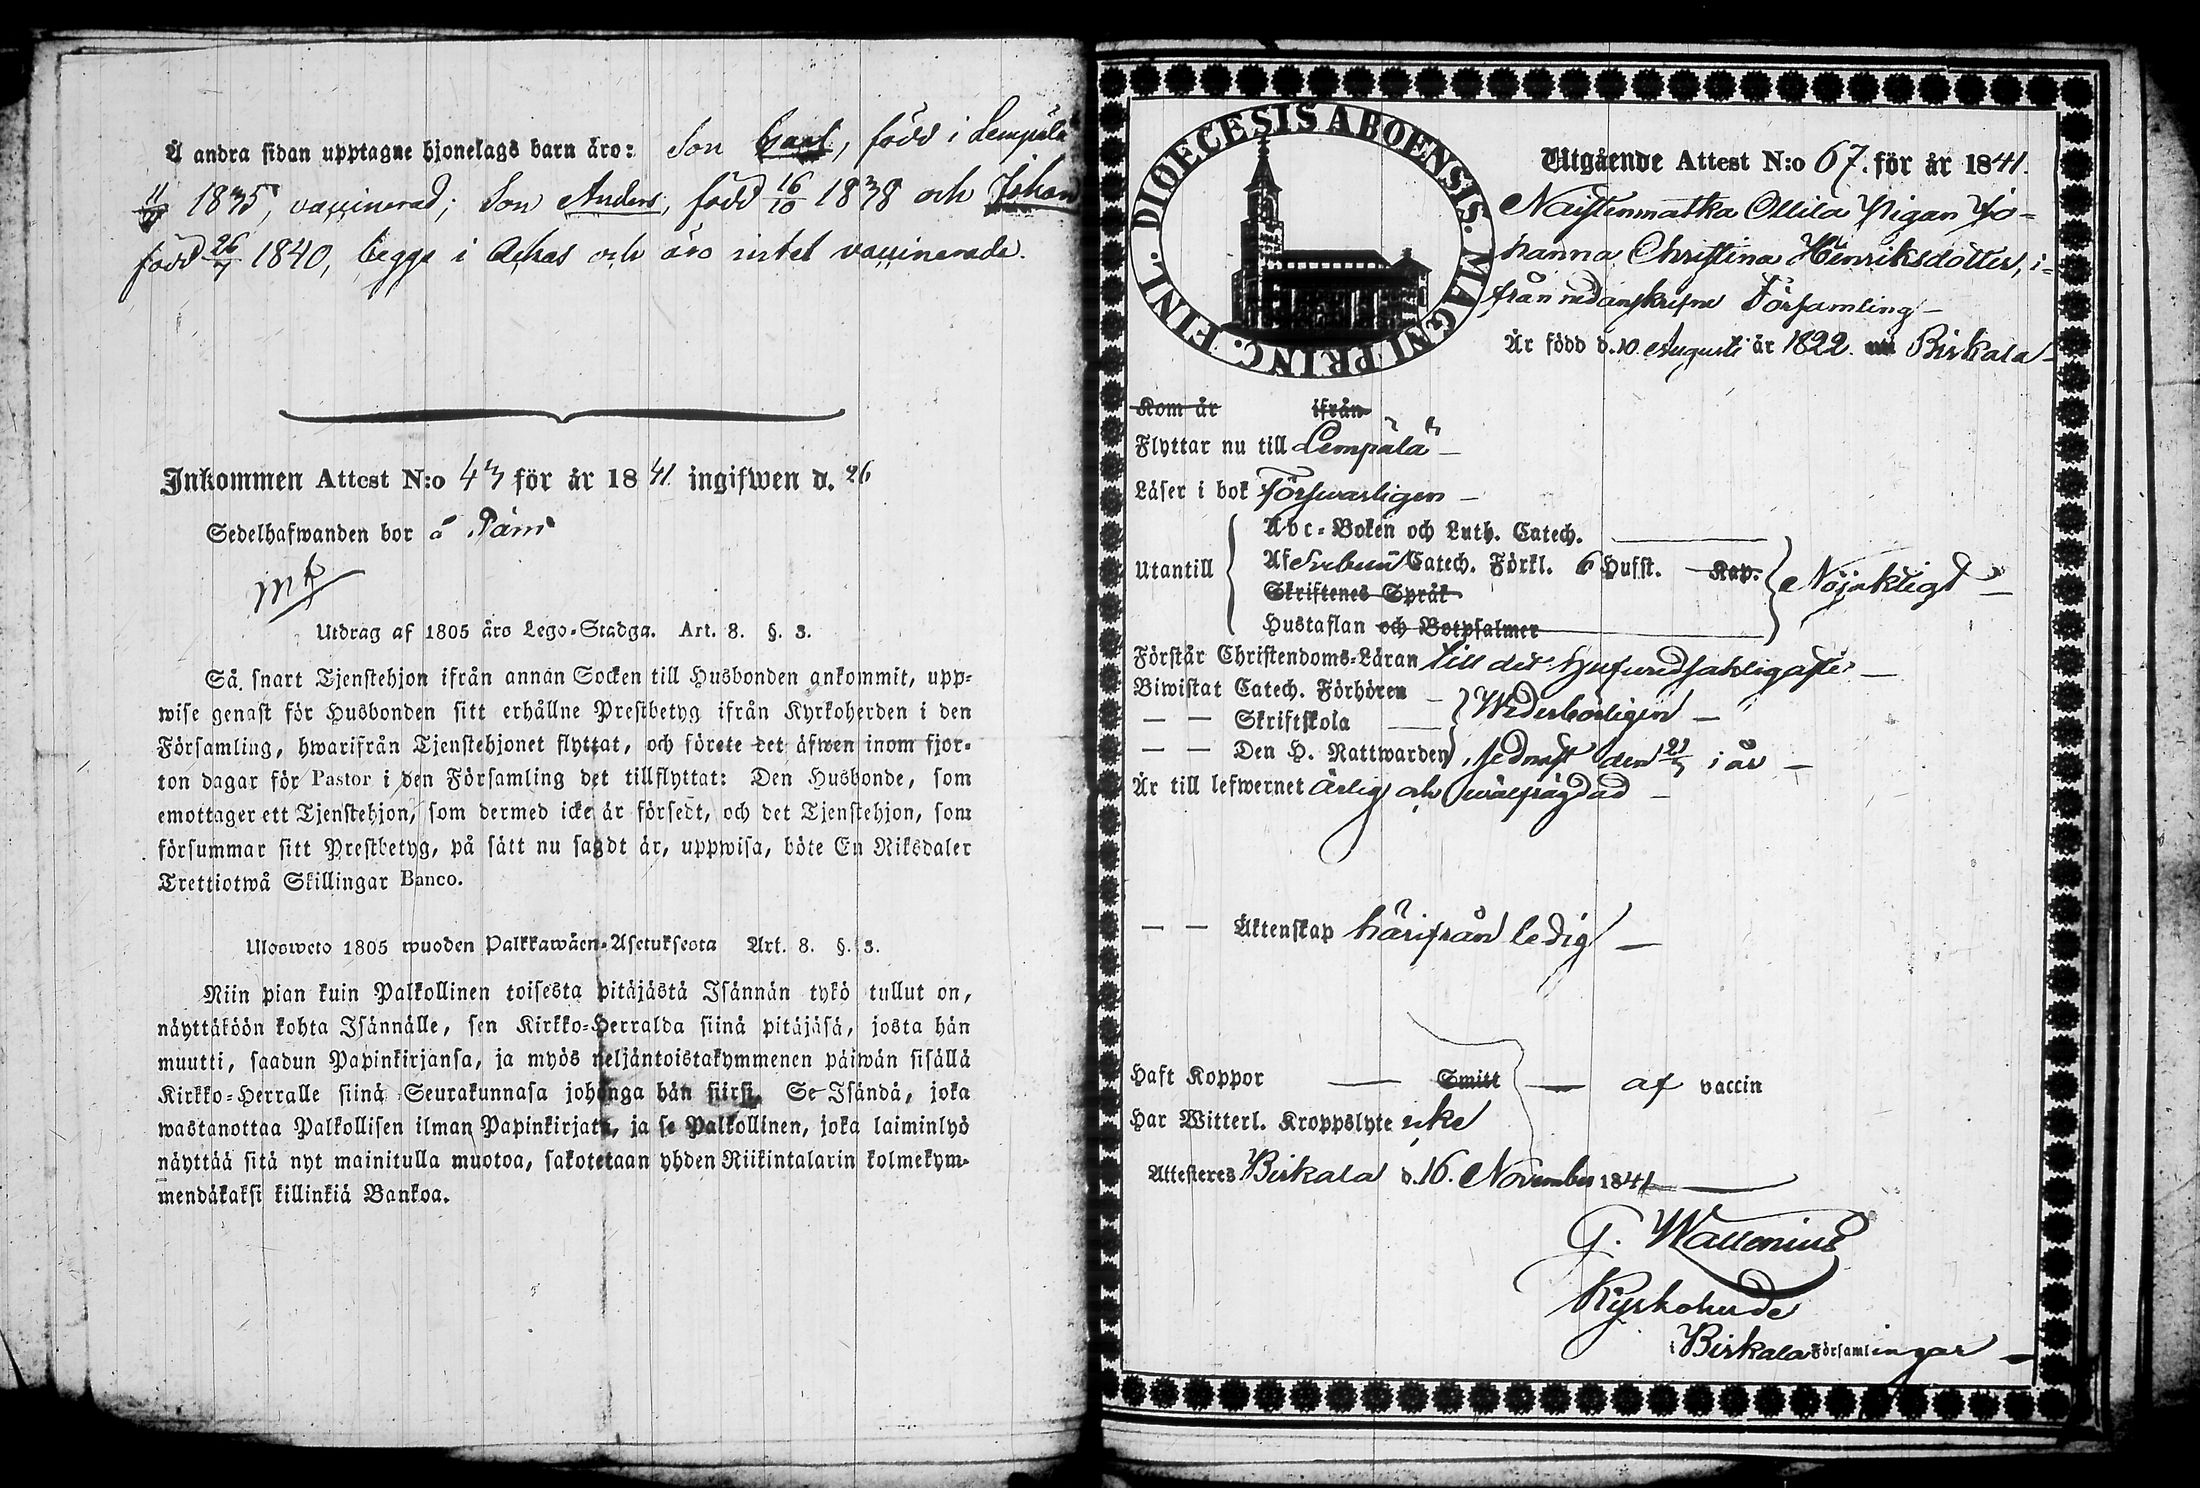 Å andra sidan upptagne hjonelags barn äro: Son Carl, född i Lempälä
1835, vaccinerad; Son Anders, född 16/10 1838 och Johan
född 26/7 1840, begge i Ackas och äro intet vaccinerade.
Inkommen Attest N:o 43 för år 1841 ingifwen d. 26
Sedelhafwanden bor å
Utdrag af 1805 års Lego-Stadga. Art. 8. §. 3.
Så snart Tjenstehjon ifrån annan Socken till Husbonden ankommit, upp-
wise genast för Husbonden sitt erhållne Prestbetyg ifrån Kyrkoherden i den
Församling, hwarifrån Tjenstehjonet flyttat, och förete det äfwen inom fjor-
ton dagar för Pastor i den Församling det tillflyttat: Den Husbonde, som
emottager ett Tjenstehjon, som dermed icke är försedt, och det Tjenstehjon, som
försummar sitt Prestbetyg, på sätt nu sagdt är, uppwisa, böte En Riksdaler
Trettiotwå Skillingar Banco.
Ulosweto 1805 wuoden Palkkawäen-Asetuksesta Art. 8. §. 3.
Niin pian kuin Palkollinen toisesta pitäjästä Isännän tykö tullut on,
näyttäköön kohta Isännälle, sen Kirkko-Herralda siinä pitäjäsä, josta hän
muutti, saadun Papinkirjansa, ja myös neljäntoistakymmenen päiwän sisällä
Kirkko-Herralle siinä Seurakunnasa johonga hän siirsi. Se Isändä, joka
wastanottaa Palkollisen ilman Papinkirjata, ja se Palkollinen, joka laiminlyö
näyttää sitä nyt mainitulla muotoa, sakotetaan yhden Riikintalarin kolmekym-
mendäkaksi killinkiä Bankoa.
DIOECESIS ABOENSIS. MAGNI PRINC. FINL.
Utgående Attest N:o 67. för år 1841.
Naistenmatka Ollila Pigan Jo-
hanna Christina Henriksdotter, i-
från nedanskrefne Församling
Är född d. 10 Augusti år 1822. Birkala
Kom år ifrån
Flyttar nu till Lempälä
Läser i bok Försvarligen
Abc-Boken och Luth. Catech.
Utantill Af Svebilii Catech. Förkl. 6 Hufst. Kap. Nöjaktigt
Skriftenes Språk
Hustaflan och Botpsalmer
Förstår Christendoms-Läran till det hufvudsakligaste
Biwistat Catech. Förhören
— — Skriftskola Wederbörligen
— — Den H. Nattwarden, sednast den i år
Är till lefwernet ärlig och wälfrägdad
— — Äktenskap härifrån ledig
Haft Koppor — Smitt — af vaccin
Har Witterl. Kroppslyte icke
Attesteres Birkala d. 16. November 1841
G. Wallenius
Kyrkoherde
i Birkala Församlingar